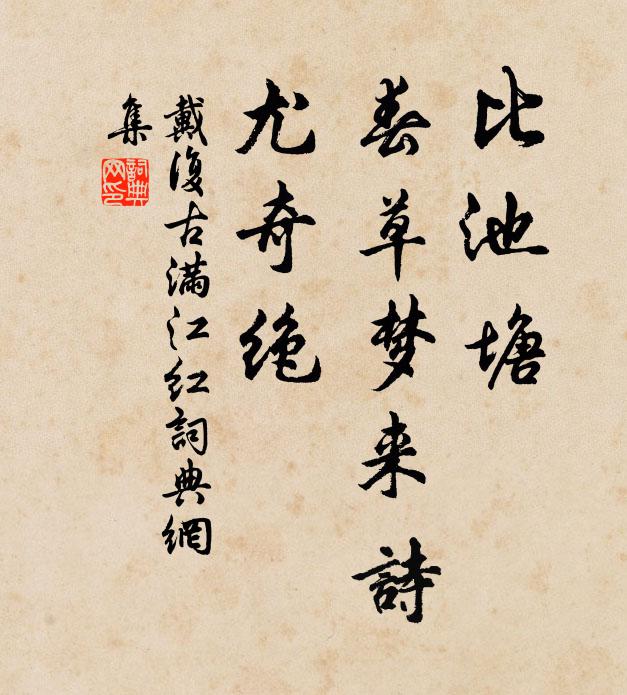 比池塘
春草梦来詩
尤奇绝
戴復古满江红詞典網
集
詞典网印